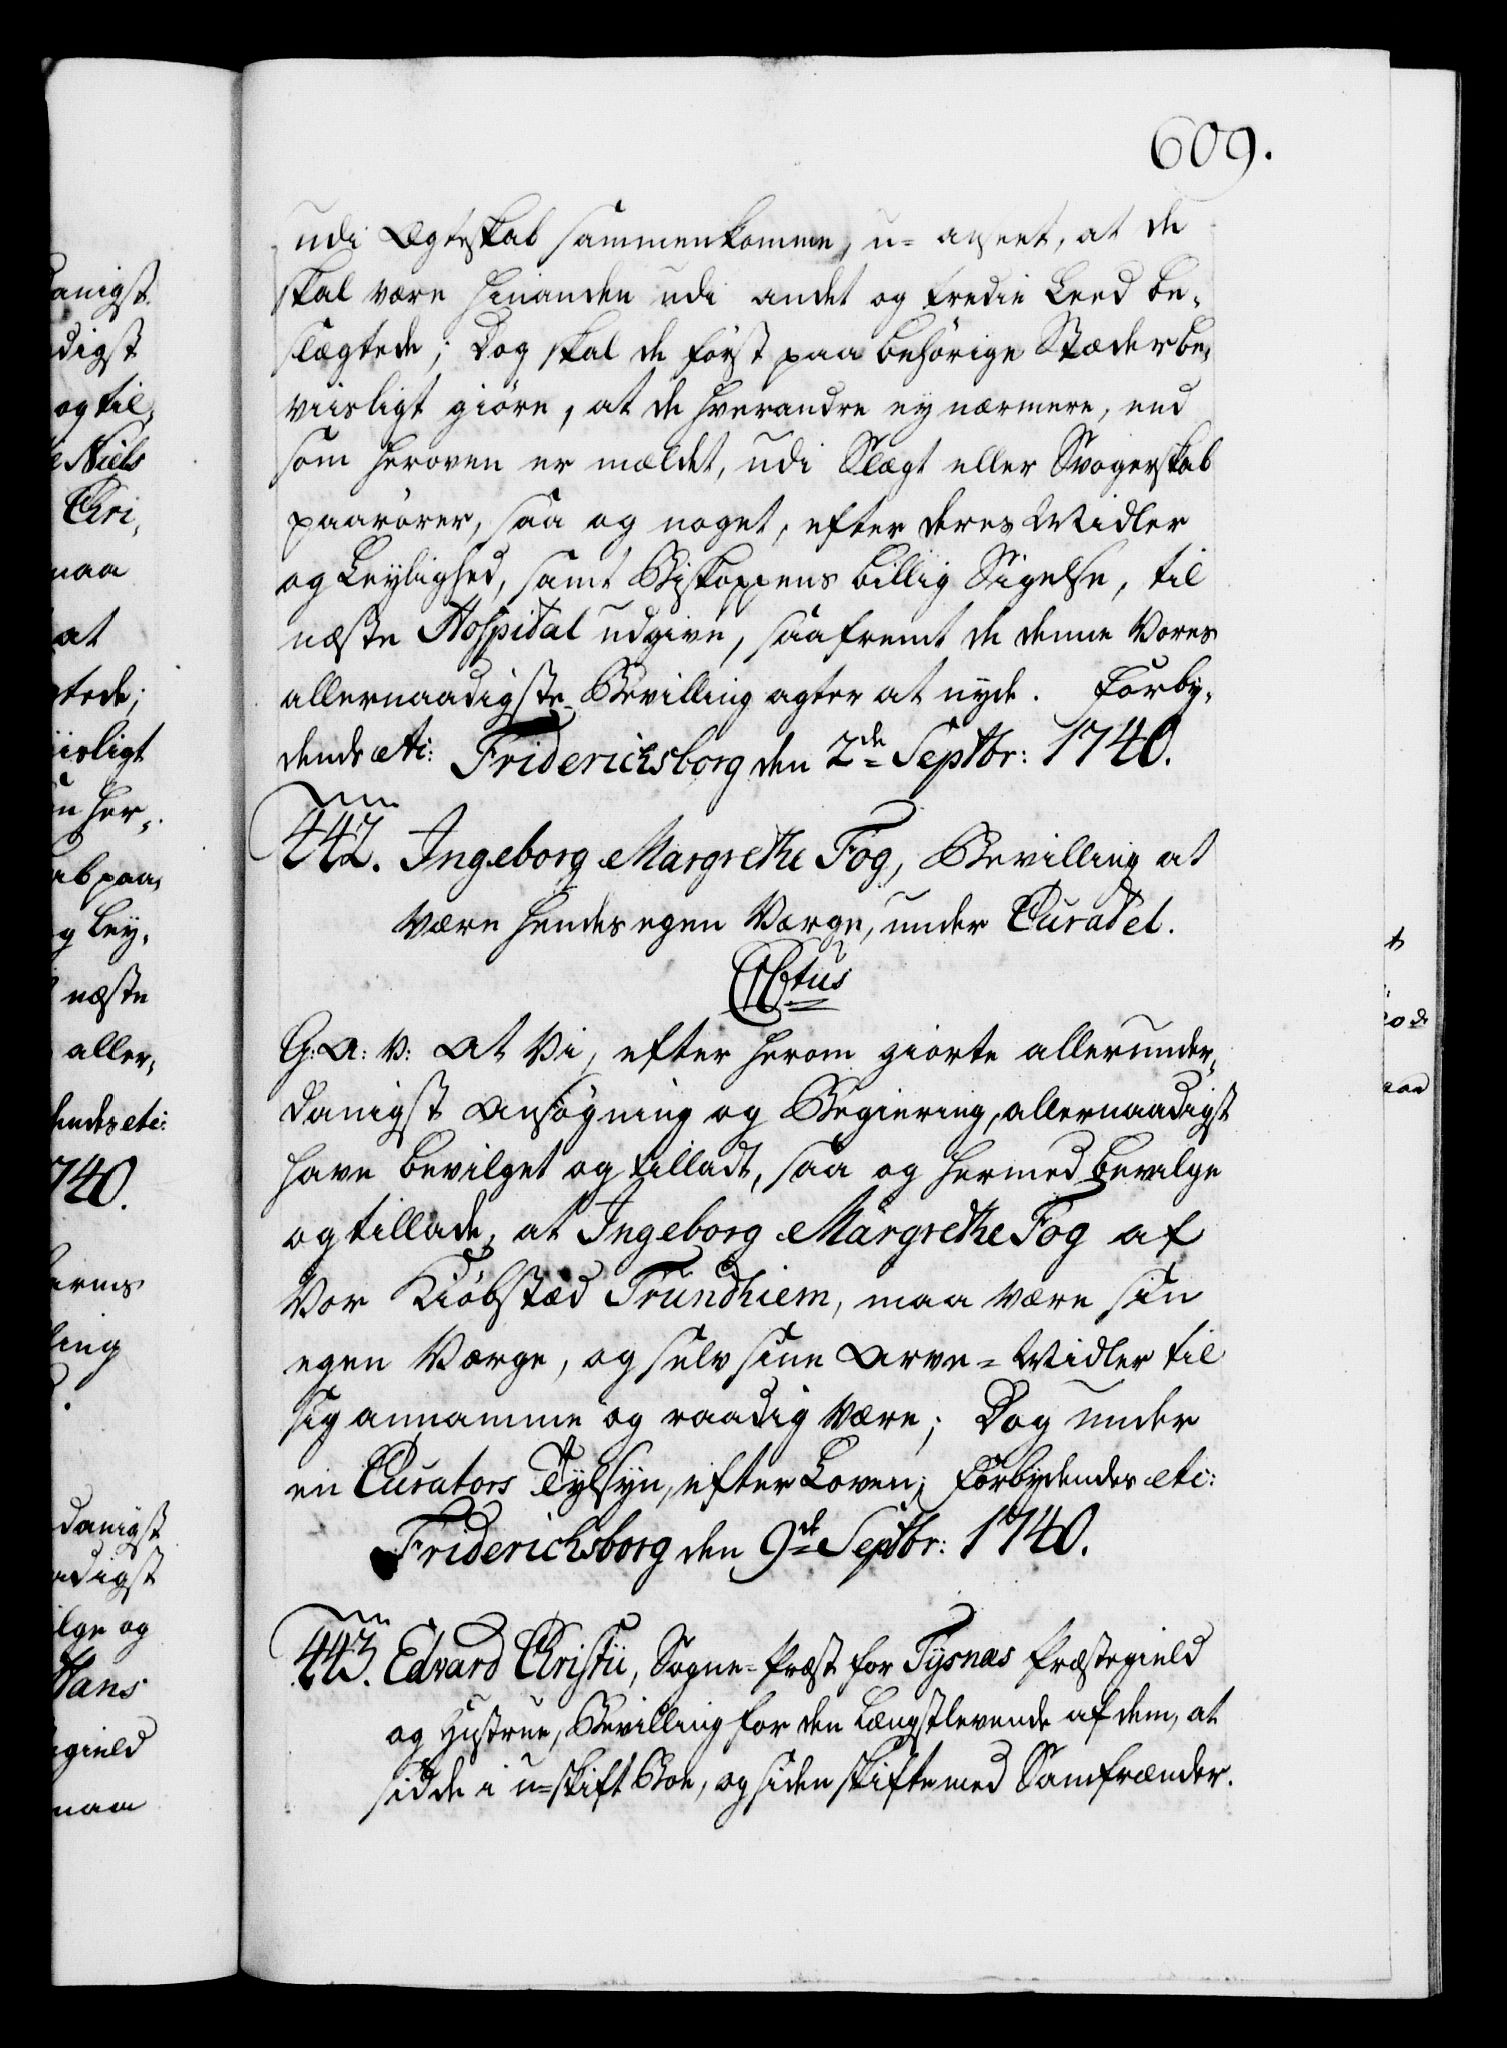 609.
udi Ægteskab sammenkomme, u-anseet, at de
skal være hinanden udi andet og tredie Leed be-
slægtede; Dog skal de först paa behörige Stæder be-
viisligt giöre, at de hverandre ey nærmere, end
som heroven er mældet, udi Slægt eller Svogerskab
paarörer, saa og noget, efter deres Midler
og Leylighed, samt Biskoppens billig Sigelse, til
næste Hospital udgive, saafremt de denne Vores
allernaadigste Bevilling agter at nyde. Forby-
dende etc: Friderichsborg den 2de Septbr: 1740.
442. Ingeborg Margrethe Fog, Bevilling at
være hendes egen Værge, under Curatel.
CCtus
G: A: V: At Vi, efter herom giorte allerunder-
danigst Ansögning og Begiering, allernaadigst
have bevilget og tilladt, saa og hermed bevilge
og tillade, at Ingeborg Margrethe Fog af
Vor Kiöbstæd Trundhiem, maa være sin
egen Værge, og selv sine Arve-Midler til
sig annamme og raadig være; Dog under
en Curators Tylsyn, efter Loven; Forbydendes etc:
Friderichsborg den 9de Septbr: 1740.
443. Edvard Christii, Sogne-Præst for Tysnæs Præstegield
og Hustrue, Bevilling for den Længstlevende af dem, at
sidde i u-skift Boe, og siden skifte med Samfrænder.